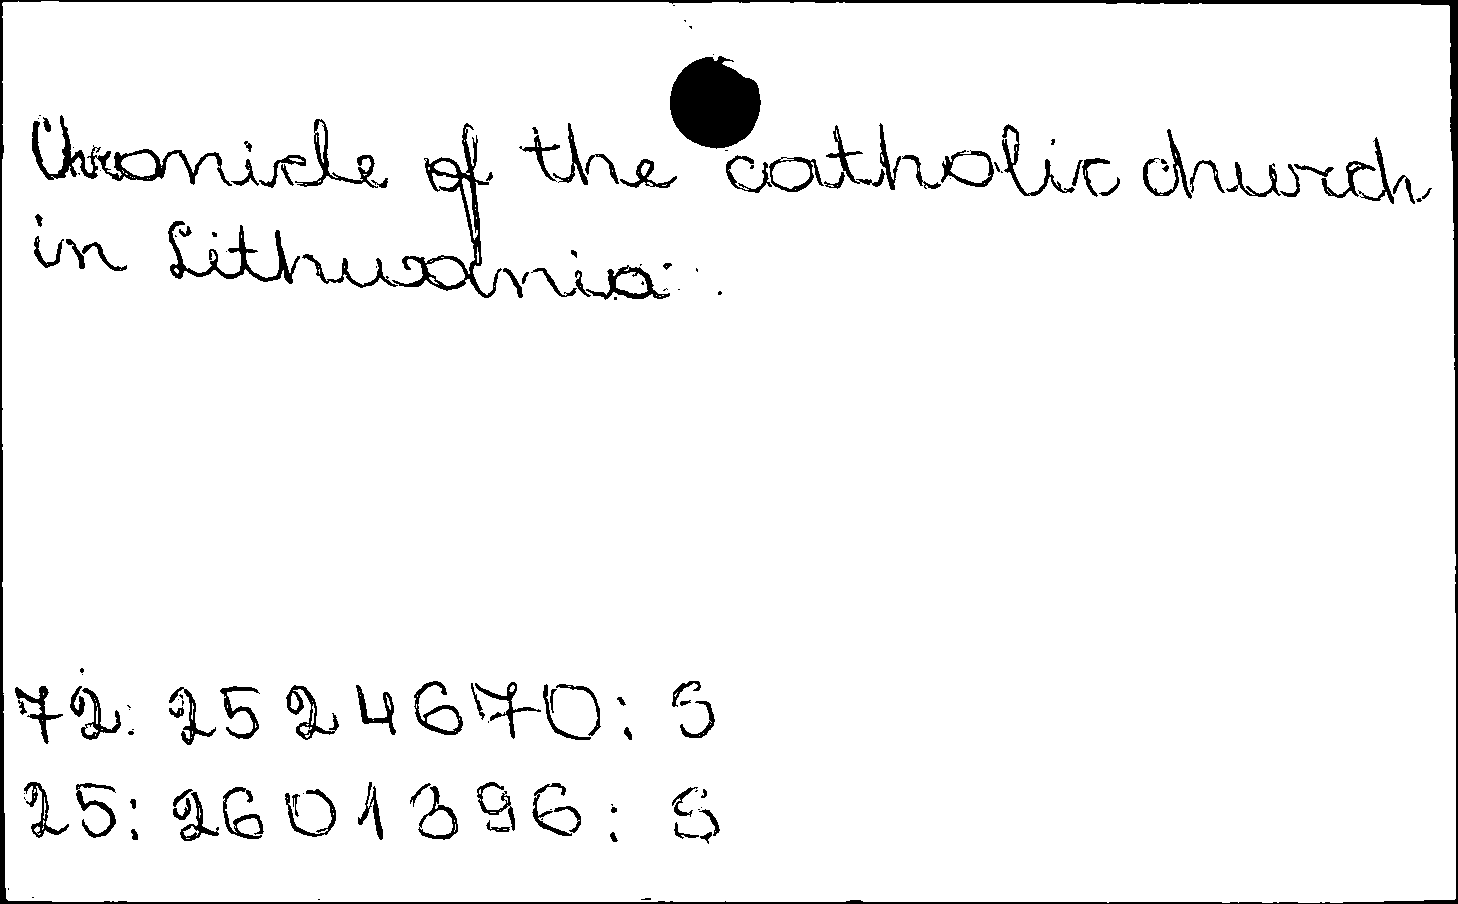 Chronicle of the catholic church
in Lithuania.
72: 2524670: S
25: 2601396: S